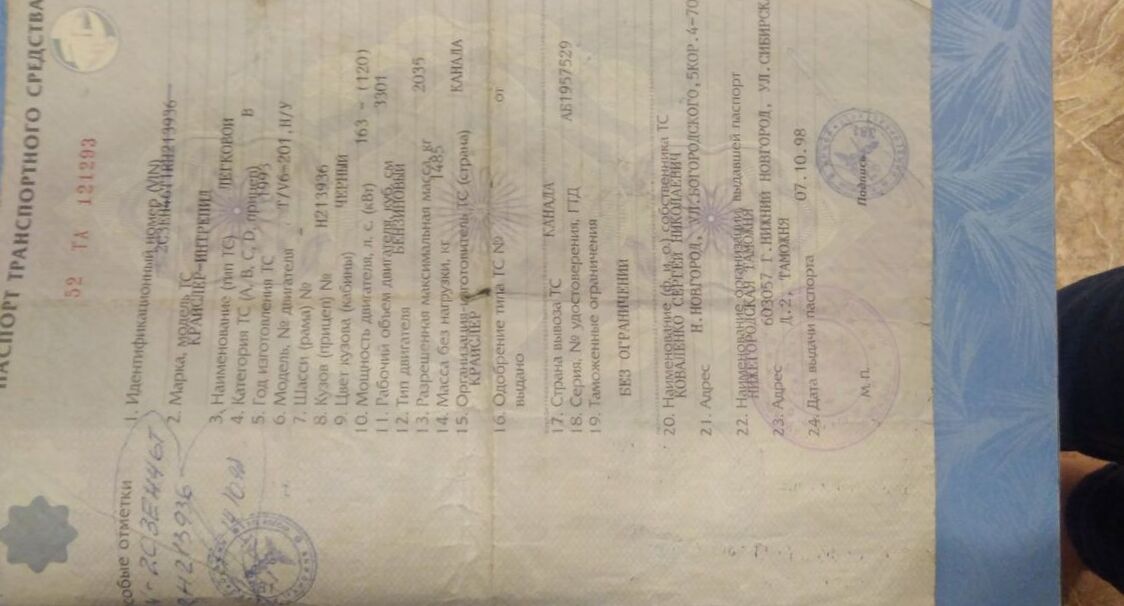 ПАСПОРТ ТРАНСПОРТНОГО СРЕДСТВА
52 ТА 121293
1. Идентификационный номер (VIN)
2. Марка, модель ТС
КРАЙСЛЕР-ИНТРЕПИД
3. Наименование (тип ТС) ЛЕГКОВОЙ
4. Категория ТС (A, B, C, D, прицеп) B
5. Год изготовления ТС 1993
6. Модель, № двигателя Т/V6-201,Н/У
7. Шасси (рама) № -
8. Кузов (прицеп) № H213936
9. Цвет кузова (кабины) ЧЕРНЫЙ
10. Мощность двигателя, л. с. (кВт) 163 - (120)
11. Рабочий объем двигателя, куб. см 3301
12. Тип двигателя БЕНЗИНОВЫЙ
13. Разрешенная максимальная масса, кг 2035
14. Масса без нагрузки, кг 1485
15. Организация-изготовитель ТС (страна) КАНАДА
КРАЙСЛЕР
16. Одобрение типа ТС № от
выдано
17. Страна вывоза ТС КАНАДА
18. Серия, № удостоверения, ГТД АБ1957529
19. Таможенные ограничения
БЕЗ ОГРАНИЧЕНИЙ
20. Наименование (ф. и. о.) собственника ТС
КОВАЛЕНКО СЕРГЕЙ НИКОЛАЕВИЧ
21. Адрес Н.НОВГОРОД, УЛ.БОГОРОДСКОГО,5КОР.4-70
22. Наименование организации, выдавшей паспорт
НИЖЕГОРОДСКАЯ ТАМОЖНЯ
603057 Г.НИЖНИЙ НОВГОРОД, УЛ.СИБИРСК
23. Адрес Д.2, ТАМОЖНЯ
24. Дата выдачи паспорта 07.10.98
М. П. Подпись
собые отметки